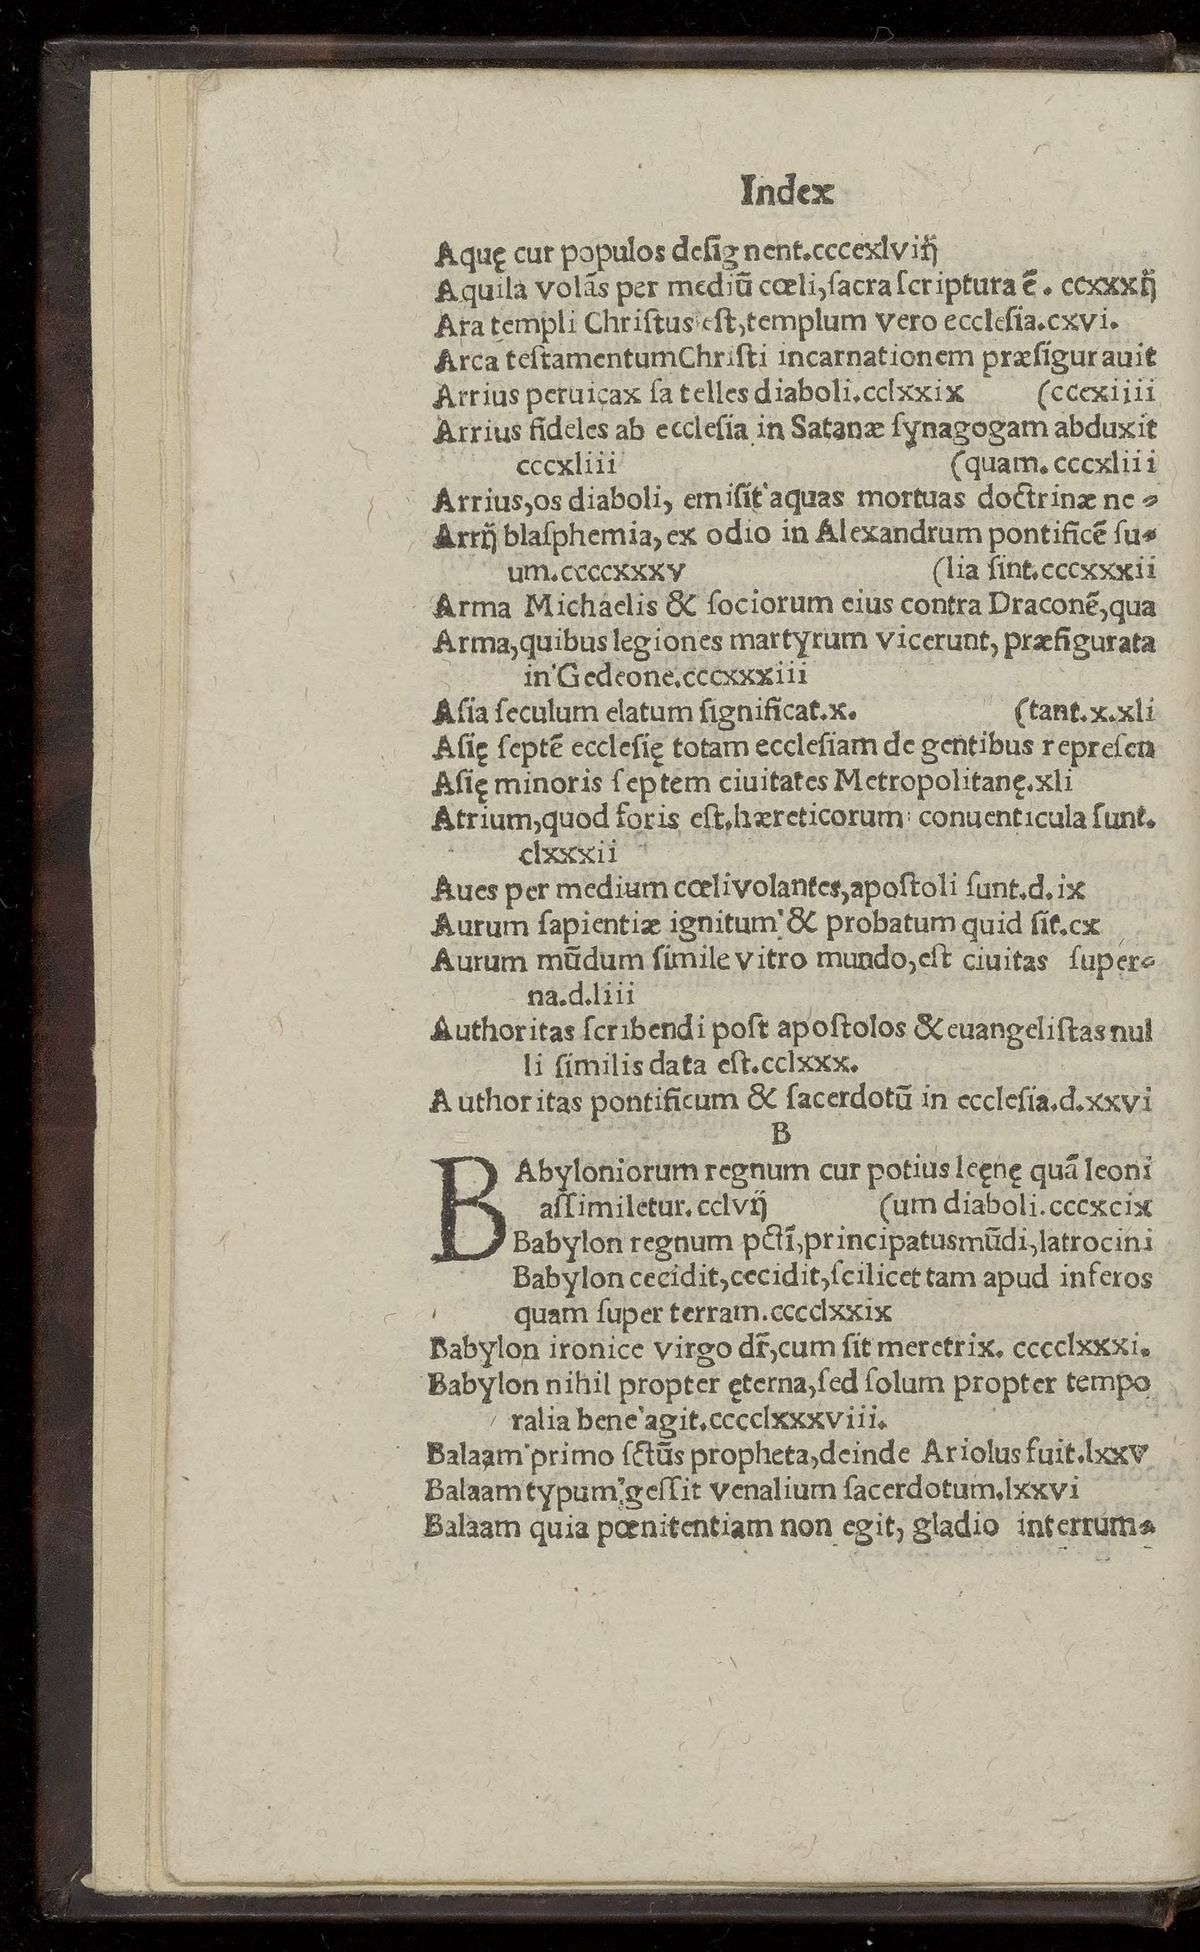 Index
Aquę cur populos deſignent.cccexlviij̈
Aquila volās per mediū cœli,ſacra ſcriptura ē. ccxxxij̈
Ara templi Chriſtus eſt,templum vero eccleſia.cxvi.
Arca teſtamentum Chriſti incarnationem præfigurauit
Arrius peruicax ſatelles diaboli.cclxxix (cccxiiii
Arrius fideles ab eccleſia in Satanæ ſynagogam abduxit
cccxliii (quam. cccxliii
Arrius,os diaboli, emiſit aquas mortuas doctrinæ ne⸗
Arrij̈ blaſphemia,ex odio in Alexandrum pontificē ſu⸗
um.ccccxxxv (lia ſint.cccxxxii
Arma Michaelis & ſociorum eius contra Draconē,qua
Arma,quibus legiones martyrum vicerunt, præfigurata
in Gedeone.cccxxxiii
Aſia ſeculum elatum ſignificat.x. (tant.x.xli
Aſię ſeptē eccleſię totam eccleſiam de gentibus repreſen
Aſię minoris ſeptem ciuitates Metropolitanę.xli
Atrium,quod foris eſt,hæreticorum conuenticula ſunt.
clxxxii
Aues per medium cœli volantes,apoſtoli ſunt.d.ix
Aurum ſapientiæ ignitum & probatum quid ſit.cx
Aurum mūdum ſimile vitro mundo,eſt ciuitas ſuper⸗
na.d.liii
Authoritas ſcribendi poſt apoſtolos & euangeliſtas nul
li ſimilis data eſt.cclxxx.
Authoritas pontificum & ſacerdotū in eccleſia.d.xxvi
B
BAbyloniorum regnum cur potius leęnę quā leoni
aſſimiletur. cclvij̈ (um diaboli.cccxcix
Babylon regnum pctī,principatus mūdi,latrocini
Babylon cecidit,cecidit,ſcilicet tam apud inferos
quam ſuper terram.cccclxxix
Babylon ironice virgo dr̄,cum ſit meretrix. cccclxxxi.
Babylon nihil propter ęterna,ſed ſolum propter tempo
ralia bene agit.cccclxxxviii.
Balaam primo ſctūs propheta,deinde Ariolus fuit.lxxv
Balaam typum geſſit venalium ſacerdotum.lxxvi
Balaam quia pœnitentiam non egit, gladio interrum⸗